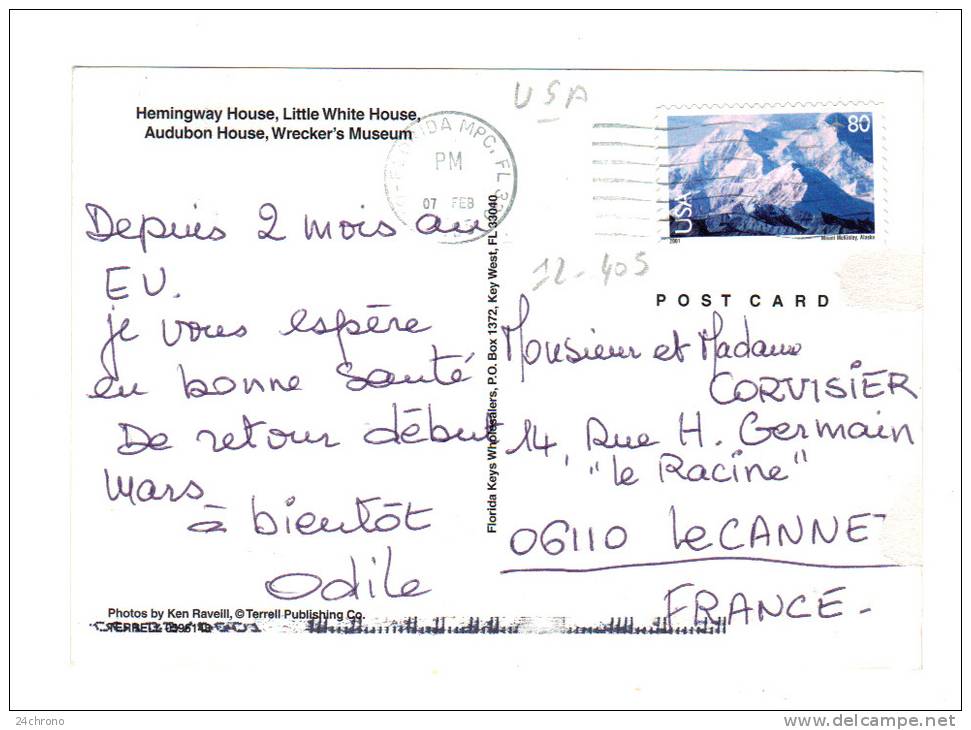 Hemingway House, Little White House,
Audubon House, Wrecker's Museum
USA
FLORIDA MPC, FL
PM
07 FEB
80
USA
2001
Mount McKinley, Alaska
12-405
POST CARD
Depuis 2 mois au
EU.
je vous espère
en bonne santé
De retour début
Mars
à bientôt
Odile
Florida Keys Wholesalers, P.O. Box 1372, Key West, FL 33040
Monsieur et Madame
CORVISIER
14, Rue H. Germain
"le Racine"
06110 le CANNET
FRANCE-
Photos by Ken Raveill, © Terrell Publishing Co.
TERRELL
24chrono
www.delcampe.net